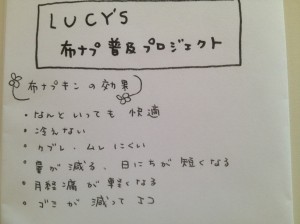 LUCY'S
布ナプ普及プロジェクト
布ナプキンの効果
・なんといっても 快適
・冷えない
・カブレ・ムレにくい
・量が減る、日にちが短くなる
・月経痛が軽くなる
・ゴミが減ってエコ